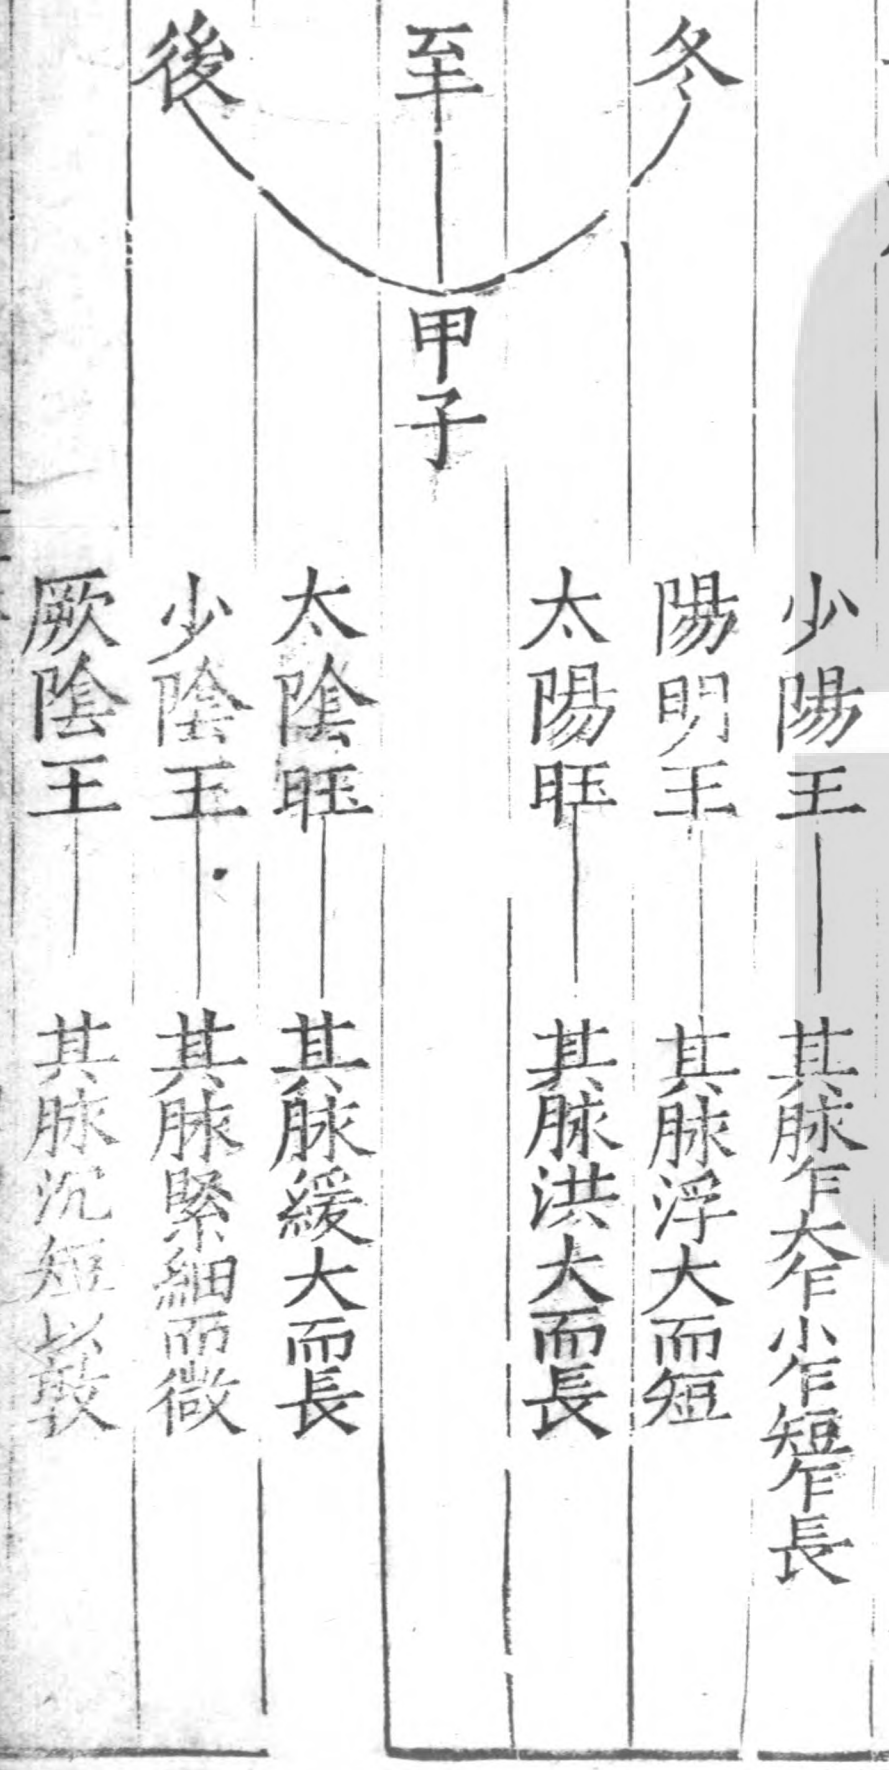 冬至後
甲子
少陽王
其脉乍大乍小乍短乍長
陽明王
其脉浮大而短
太陽旺
其脉洪大而長
太陰旺
其脉緩大而長
少陰王
其脉緊細而微
厥陰王
其脉沉短以敦